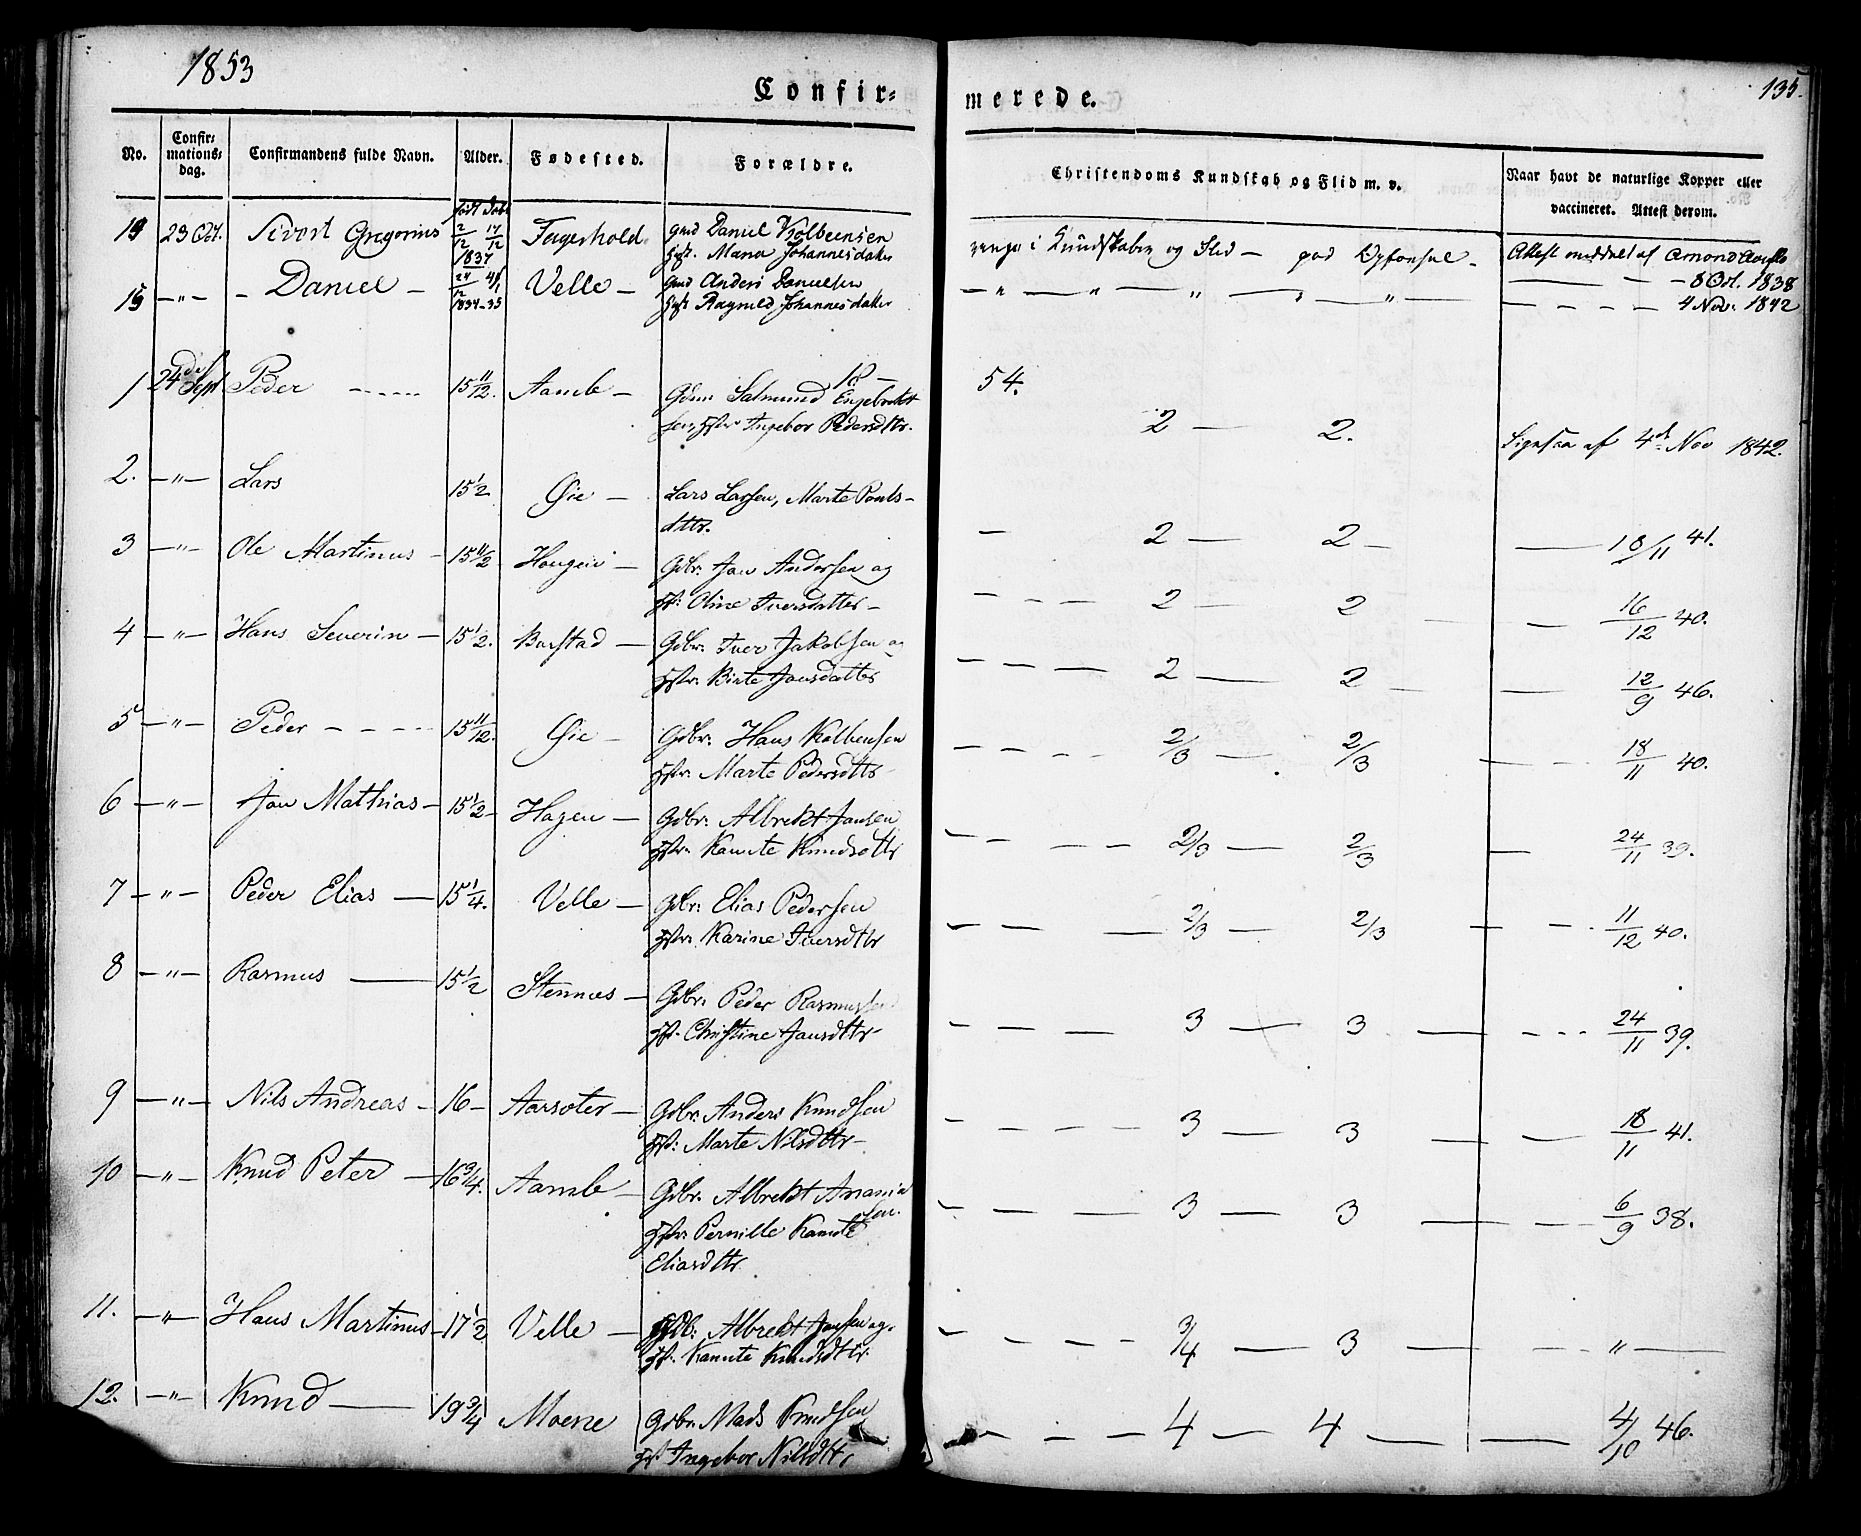 1853
135.
Confir-
merede.
No.
Confir-
mations-
dag.
Confirmandens fulde Navn.
Alder.
Fødested.
Forældre.
Christendoms Kundskab og Flid m. v.
Naar havt de naturlige Kopper eller
vaccineret. Attest derom.
19 23 Oct. Sivert Gregorius 2/12 17/12 1837 Fagerhold gmd Daniel Kolbeensen
Johannesdater
i Kundskaber og Flid — god Opførsel - Attest meddelt af
— — - 8 Oct. 1838
15 -"- - Daniel - 24/12 1834-35 Velle - gmd Anders Danielsen
Ragnild Johannesdater
— " — " — " — " — " — - - - 4 Nov. 1842
18 —
54.
1 24de Sept Peder ----- 15 11/12. Aamb - Gdm: Salmund Engebrekt
sen, Ingebor Pedersdttr.
2 — 2. af 4de Nov 1842.
2. -"- Lars 15 1/2 Øie - Lars Larsen, Marte Ponts-
dttr.
- 2 — 2 - — 18/11 41.
3 -"- Ole Martinus - 15 11/12 Haugen - Gdbr. Jon Andersen og
Oline Iversdatter -
- - - 2 — 2 — 16/12 40.
4 -"- Hans Severin - 15 1/2. Barstad — Gdbr. Iver Jakobsen og
Birte Jonsdatter
- - - 2 — 2 - — 12/9 46.
5 -"- Peder - - - - 15 11/12. Øie - Gdbr. Hans Kolbensen
Marte Pedersdttr
- - - - 2/3 — 2/3 - - - 18/11 40.
6 -"- Jon Mathias - 15 1/2 - Hagen - Gdbr. Albrekt Jonsen
Kanute Knudsdttr
- - - - 2/3 — 2/3 — 24/11 39.
7 -"- Peder Elias — 15 1/4. Velle - Gdbr. Elias Pedersen
Karine Iversdttr
- - — 2/3 — 2/3 - - - 11/12 40.
8 -"- Rasmus — 15 1/2 Stennes - Gdbr. Peder Rasmussen
Christine Jonsdttr
- - - 3 — 3 — - - - 24/11 39.
9 -"- Nils Andreas - 16 - Aarsæter - Gdbr. Anders Knudsen
Marte Nilsdttr -
- - - - 3 — 3 — — 18/11 41.
10 -"- Knud Peter - 16 3/4. Aamb - Gdbr. Albrekt Anania
sen.
Pernille Kanute
Eliasdttr
- - - - 3 — 3 — - - 6/9 38.
11. -"- Hans Martinus - 17 1/2 Velle - Gdb: Albrekt Jonsen og
Kanute Knudsdttr
- - - - 3/4 — 3 — - - " —
12. -"- Knud — 19 3/4 Moene Gdbr. Mads Knudsen
Ingebor Nilsdttr.
- - - 4 — 4 — — 4/10 46.